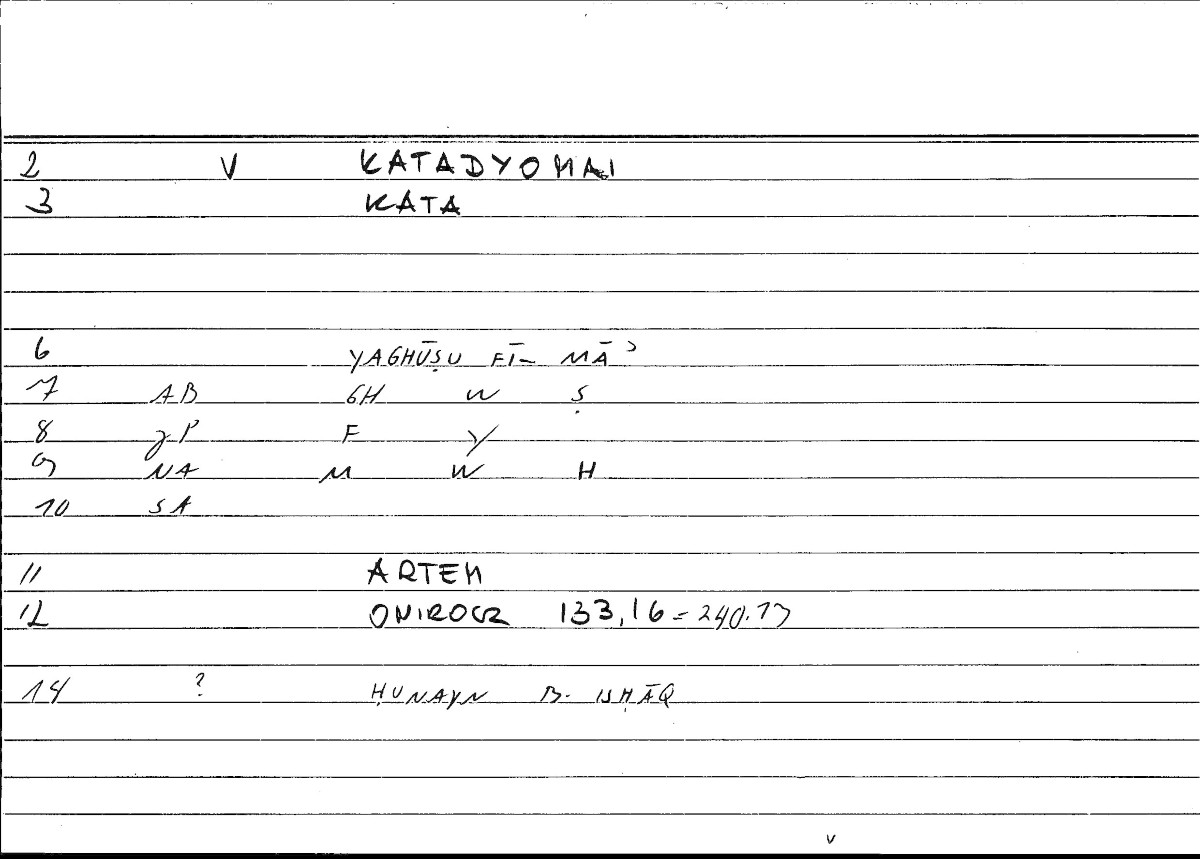 2 V KATADYOMAI
3 KATA
6 YAGHŪṢU FĪ- MĀʾ
7 AB GH W Ṣ
8 gP F Y
9 NA M W H
10 SA
11 ARTEM
12 ONIROCR 133,16 = 240.13
14 ? ḤUNAYN B. ISḤĀQ
v